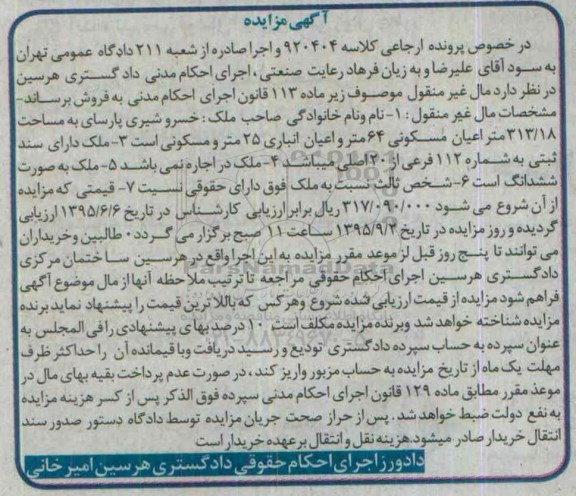 آگهی مزایده
در خصوص پرونده ارجاعی کلاسه ۹۲۰۴۰۴ و اجرا صادره از شعبه ۲۱۱ دادگاه عمومی تهران
به سود آقای علیرضا و به زیان فرهاد رعایت صنعتی، اجرای احکام مدنی دادگستری هرسین
در نظر دارد مال غیر منقول موصوف زیر ماده ۱۱۳ قانون اجرای احکام مدنی به فروش برساند-
مشخصات مال غیر منقول : ۱-نام ونام خانوادگی صاحب ملک : خسرو شیری پارسای به مساحت
۳۱۳/۱۸ متر اعیان مسکونی ۶۴ متر و اعیان انباری ۲۵ متر و مسکونی است ۳-ملک دارای سند
ثبتی به شماره ۱۱۲ فرعی از ۲۰ اصلی میباشد ۴-ملک در اجاره نمی باشد ۵-ملک به صورت
ششدانگ است ۶-شخص ثالث نسبت به ملک فوق دارای حقوقی نسیت ۷- قیمتی که مزایده
از آن شروع می شود ۳۱۷/۰۹۰/۰۰۰ ریال برابر ارزیابی کارشناس در تاریخ ۱۳۹۵/۶/۶ ارزیابی
گردیده و روز مزایده در تاریخ ۱۳۹۵/۹/۲ ساعت ۱۱ صبح برگزار می گردد۰ طالبین وخریداران
می توانند تا پنج روز قبل از موعد مقرر مزایده به این اجرا واقع در هرسین ساختمان مرکزی
دادگستری هرسین اجرای احکام حقوقی مراجعه تا ترتیب ملاحظه آنها از مال موضوع آگهی
فراهم شود مزایده از قیمت ارزیابی شده شروع وهر کس که باللا ترین قیمت را پیشنهاد نماید برنده
مزایده شناخته خواهد شد وبرنده مزایده مکلف است ۱۰ درصد بهای پیشنهادی را فی المجلس به
عنوان سپرده به حساب سپرده دادگستری تودیع و رسید دریافت وبا قیمانده آن را حداکثر ظرف
مهلت یک ماه از تاریخ مزایده به حساب مزبور واریز کند، در صورت عدم پرداخت بقیه بهای مال در
موعد مقرر مطابق ماده ۱۲۹ قانون اجرای احکام مدنی سپرده فوق الذکر پس از کسر هزینه مزایده
به نفع دولت ضبط خواهد شد . پس از حراز صحت جریان مزایده توسط دادگاه دستور صدور سند
انتقال خریدار صادر میشود.هزینه نقل و انتقال بر عهده خریدار است
دادورز اجرای احکام حقوقی دادگستری هرسین امیرخانی
ParsNamadData